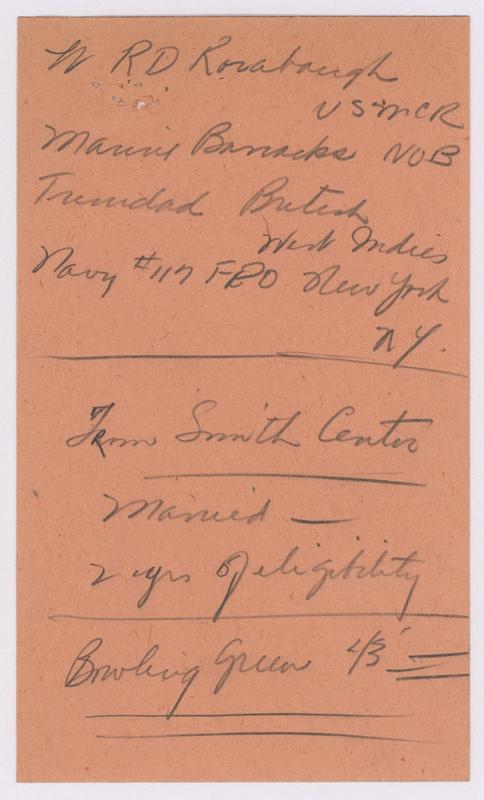 Lt RD Rorabaugh
USMCR
Marine Barracks NOB
Trinidad British
West Indies
Navy #117 FPO New York
NY.
Smith Center
Married —
2 yrs of eligibility
Bowling Green 43'